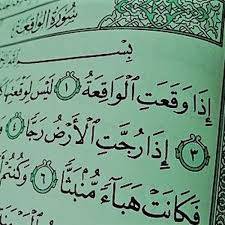 سُورَةُ الواقِعَة
بِسْمِ
إِذَا وَقَعَتِ ٱلْوَاقِعَةُ ١ لَيْسَ لِوَقْعَتِهَا
٣ إِذَا رُجَّتِ ٱلْأَرْضُ رَجًّا ٤
فَكَانَتْ هَبَآءً مُّنۢبَثًّا ٦ وَكُنتُمْ